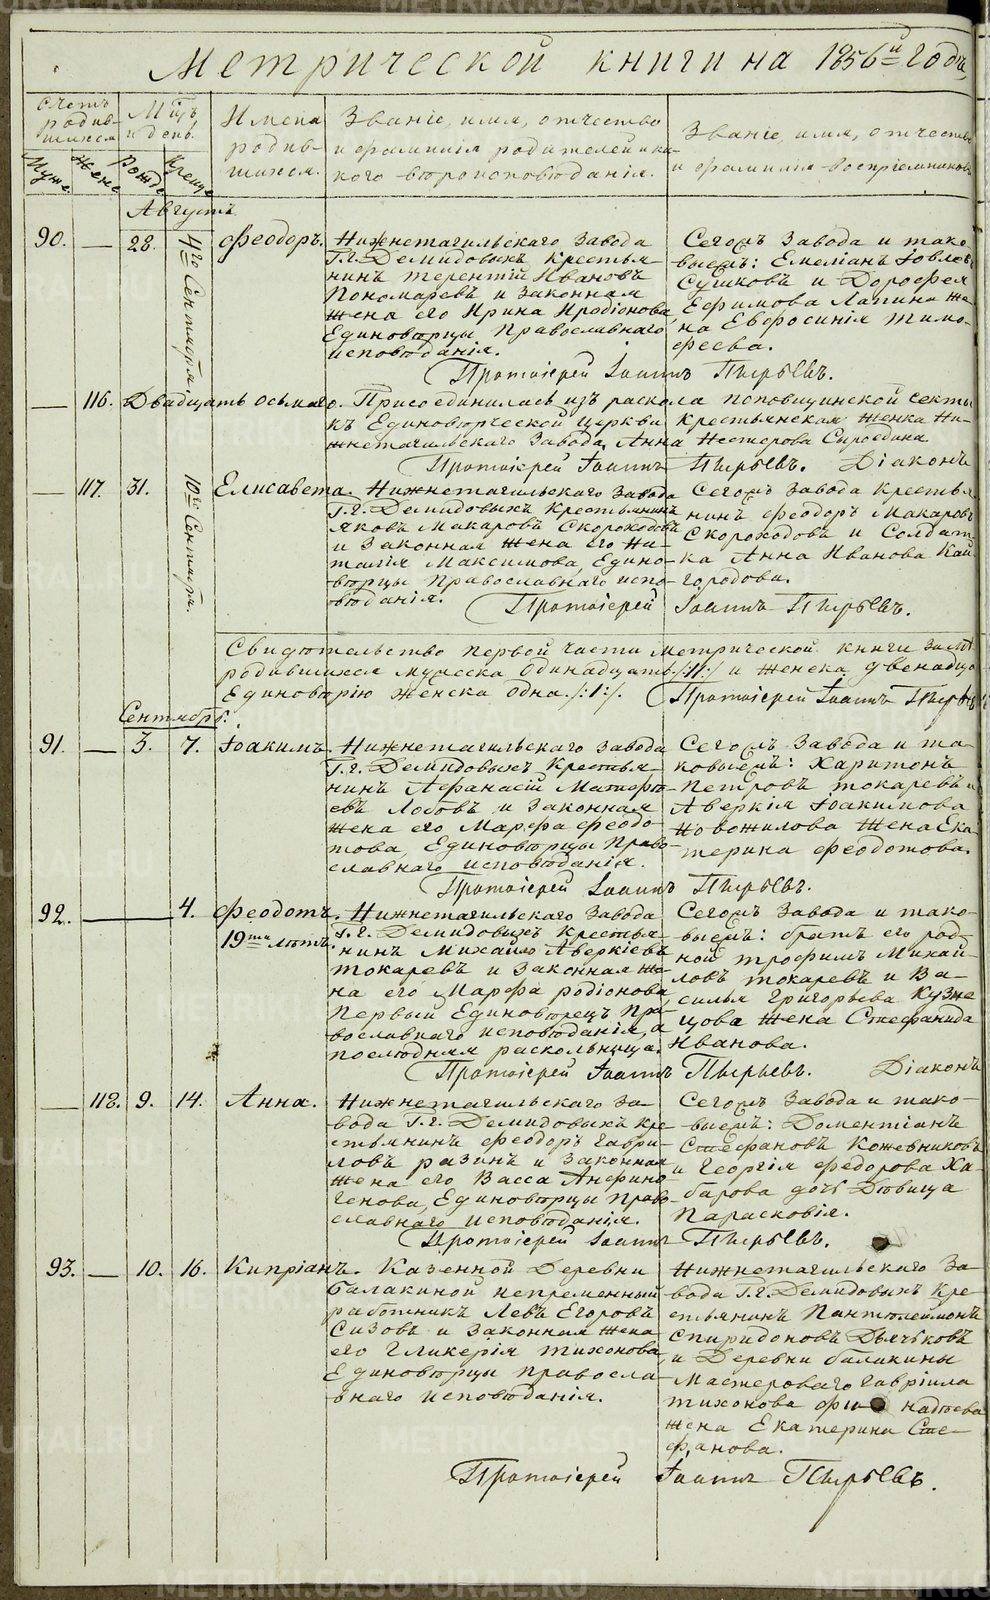 Метрической книги на 1856й годъ,
Счетъ родив-
шихся
Муже.
Жене
Мцъ,
и день.
Рожде
Креще
Имена
родив-
шихся.
Званіе, имя, отчество
и фамилія родителей и ка-
кого вѣроисповѣданія.
Званіе, имя, отчество
и фамилія воспріемниковъ
Августъ
90. — 28. 4го Сентября Феодоръ.
Нижнетагильскаго Завода
Г.г. Демидовыхъ крестья-
нинъ Терентій Ивановъ
Пономаревъ и законная
жена его Ирина Иродіонова,
Единовѣрцы Православнаго
исповѣданія.
Сегожъ Завода и тако-
выежъ: Емеліанъ Іовлевъ
Сушковъ и Дорофея
Ефимова Лапина же-
на Евфросинія Тимо-
феева.
Протоіерей Іоаннъ Пырьевъ.
— 116. Двадцать осьмаго. Присоединилась изъ раскола поповщинской секты
къ Единовѣрческой церкви крестьянская женка Ни-
жнетагильскаго Завода, Анна Нестерова Сыроедина
Протоіерей Іоаннъ Пырьевъ. Діаконъ
— 117. 31. 10го Сентября. Елисавета.
Нижнетагильскаго Завода
Г.г. Демидовыхъ крестьянинъ
Яковъ Макаровъ Скороходовъ
и законная жена его На-
талія Максимова, Едино-
вѣрцы Православнаго испо-
вѣданія.
Сегожъ Завода крестья-
нинъ Феодоръ Макаровъ
Скороходовъ и Солдат-
ка Анна Иванова Кай-
городова.
Протоіерей Іоаннъ Пырьевъ.
Свидѣтельство первой части метрической книги
родившихся мужеска одинадцать /:11:/ и женска двенадца
Единовѣрію женска одна /:1:/. Протоіерей Іоаннъ Пырьевъ
Сентябрь.
91. — 3. 7. Іоакимъ.
Нижнетагильскаго Завода
Г.г. Демидовыхъ крестья-
нинъ Афанасій Матфѣ-
евъ Лобовъ и законная
жена его Марфа Феодо-
това, Единовѣрцы Право-
славнаго исповѣданія.
Сегожъ Завода и та-
ковыежъ: Харитонъ
Петровъ Токаревъ и
Аверкія Іоакимова
Новожилова жена Ека-
терина Феодотова.
Протоіерей Іоаннъ Пырьевъ.
92. — 4. Феодотъ.
19ти лѣтъ.
Нижнетагильскаго Завода
Г.г. Демидовыхъ крестья-
нинъ Михайло Аверкіевъ
Токаревъ и законная же-
на его Марфа Родіонова,
первый Единовѣрецъ Пра-
вославнаго исповѣданія, а
послѣдняя раскольница.
Сегожъ Завода и тако-
выежъ: братъ его род-
ной Трофимъ Михай-
ловъ Токаревъ и Ва-
силья Григорьева Кузне
цова жена Стефанида
Иванова.
Протоіерей Іоаннъ Пырьевъ. Діаконъ
— 118. 9. 14. Анна.
Нижнетагильскаго За-
вода Г.г. Демидовыхъ кре-
стьянинъ Феодоръ Гаври-
ловъ Разинъ и законная
жена его Васса Анфино-
генова, Единовѣрцы Право-
славнаго исповѣданія.
Сегожъ Завода и тако-
выежъ: Доментіанъ
Стефановъ Кожевниковъ
и Георгія Федорова Ха-
барова дочь дѣвица
Параскovія.
Протоіерей Іоаннъ Пырьевъ.
93. — 10. 16. Кипріанъ.
Казенной Деревни
Балакиной непременный
работникъ Левъ Егоровъ
Сизовъ и законная жена
его Гликерія Тихонова,
Единовѣрцы правосла-
внаго исповѣданія.
Нижнетагильскаго За-
вода Г.г. Демидовыхъ кре-
стьянинъ Пантелеймонъ
Спиридоновъ Дьячковъ
и Деревни Балакины
Мастероваго Гавріила
Тихонова
жена Екатерина Сте-
фанова.
Протоіерей Іоаннъ Пырьевъ.
METRIKI.GASO-URAL.RU